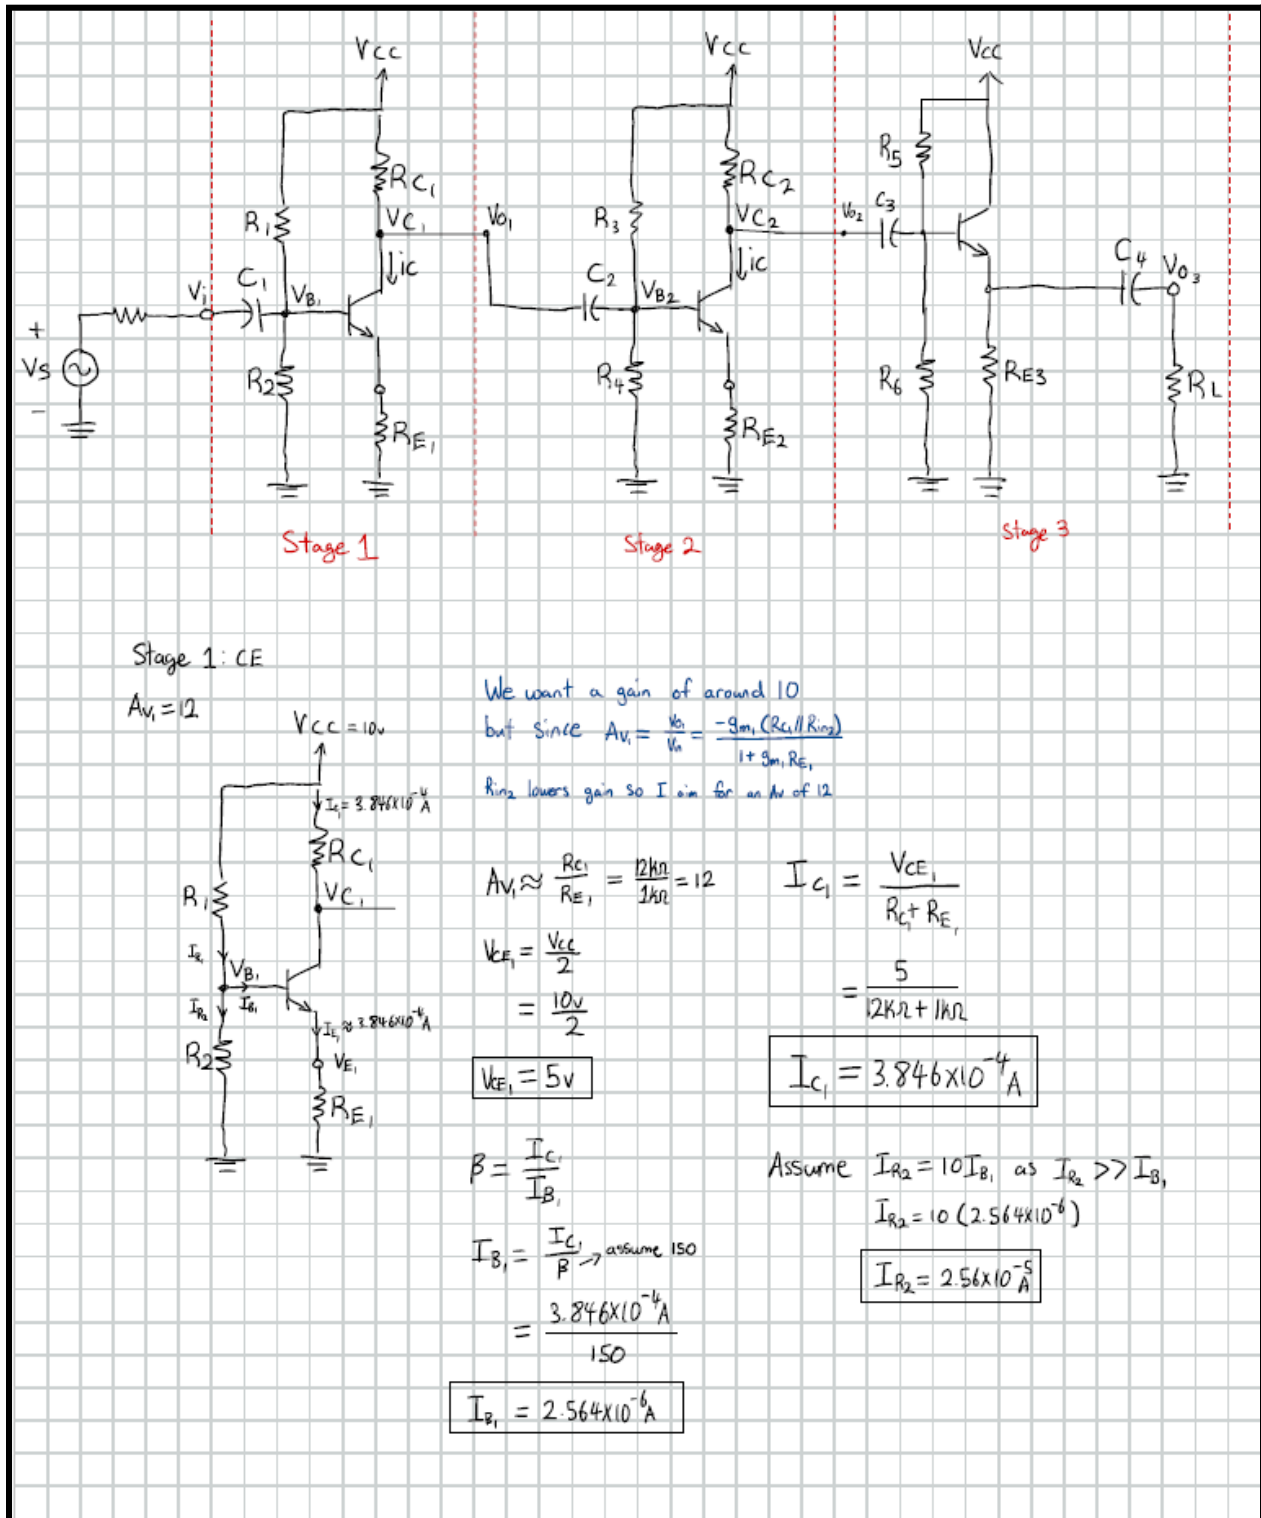 VCC VCC VCC
RC₁ RC₂ R5
R₁ VC₁ Vo₁ R₃ VC₂ Vo₂ C₃
↓ic ↓ic
Vi C₁ VB₁ C₂ VB₂ C₄ VO₃
+
VS
-
R₂ R₄ R₆ RE3 RL
RE₁ RE2
Stage 1 Stage 2 Stage 3
Stage 1: CE
Av₁ = 12
VCC = 10v
I꜀₁ = 3.846x10⁻⁴ A
RC₁
R₁ VC₁
I_R₁
VB₁
I_R₂ I_B₁
I_E₁ ≈ 3.846x10⁻⁴ A
R2 VE₁
RE₁
We want a gain of around 10
but since Av₁ = Vo₁/Vin = -gm₁ (RC₁//Rin2) / 1 + gm₁ RE₁
Rin2 lowers gain so I aim for an Av of 12
Av₁ ≈ RC₁/RE₁ = 12kΩ/1kΩ = 12
VCE₁ = Vcc/2
= 10v/2
VCE₁ = 5v
IC₁ = VCE₁ / RC₁ + RE₁
= 5 / 12kΩ + 1kΩ
IC₁ = 3.846x10⁻⁴ A
β = IC₁/IB₁
IB₁ = IC₁/β → assume 150
= 3.846x10⁻⁴A / 150
IB₁ = 2.564x10⁻⁶A
Assume IR2 = 10IB₁ as IR2 >> IB₁
IR2 = 10 (2.564x10⁻⁶)
IR2 = 2.56x10⁻⁵ A